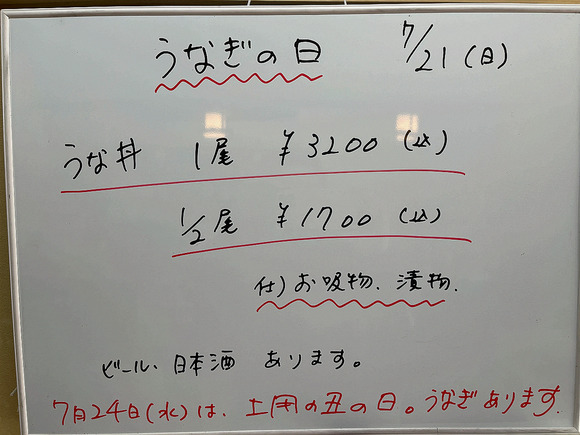 うなぎの日 7/21(日)
うな丼 1尾 ¥3200(込)
1/2尾 ¥1700(込)
付)お吸物、漬物.
ビール、日本酒 あります。
7月24日(水)は、土用の丑の日。うなぎあります.